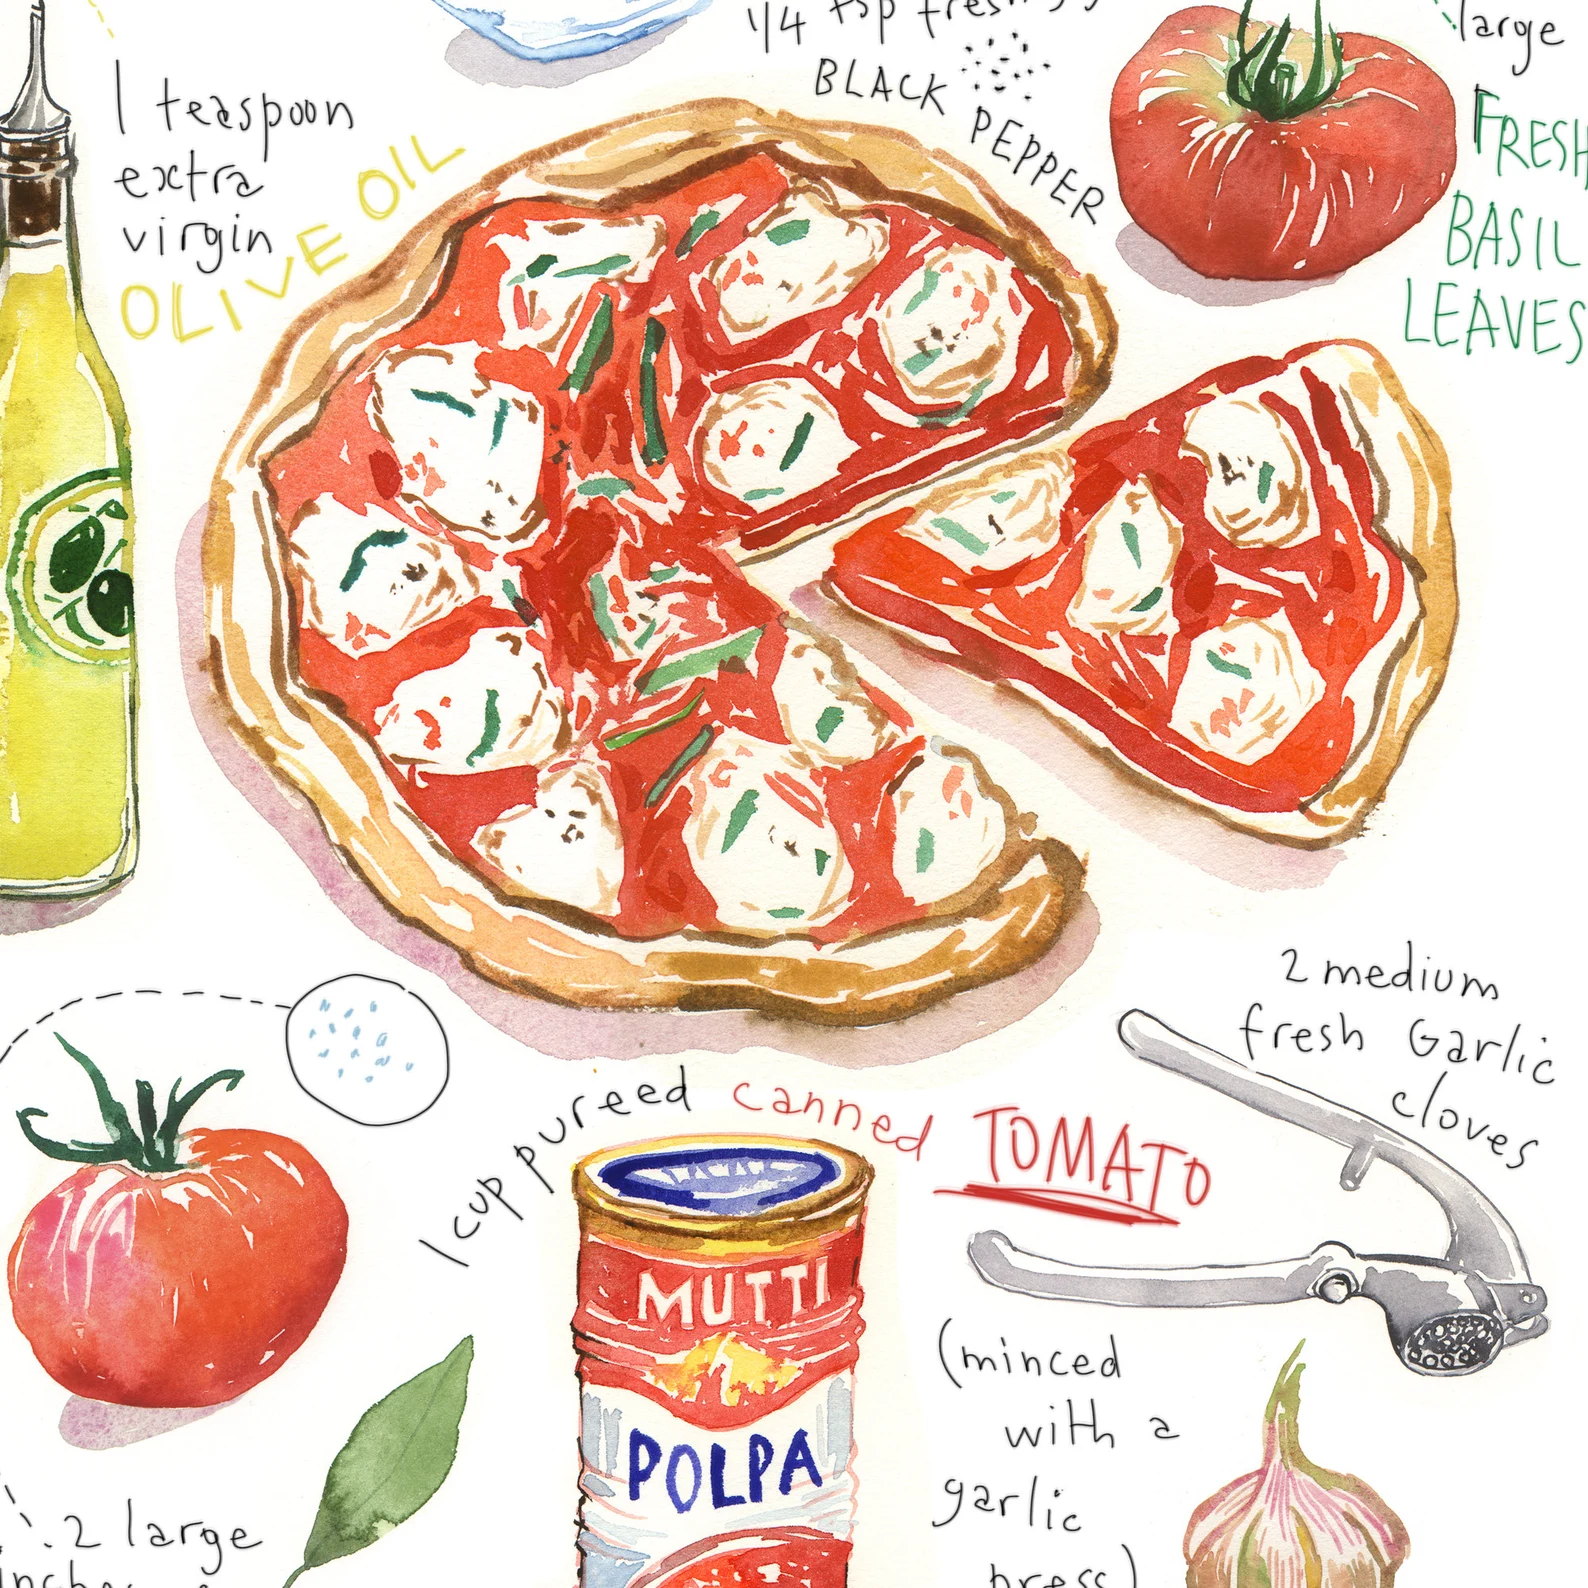 1/4 tsp
BLACK
PEPPER
large
FRESH
BASIL
LEAVES
1 teaspoon
extra
virgin
OLIVE OIL
2 medium
fresh Garlic
cloves
1 cup pureed canned TOMATO
MUTTI
POLPA
(minced
with a
garlic
press)
2 large